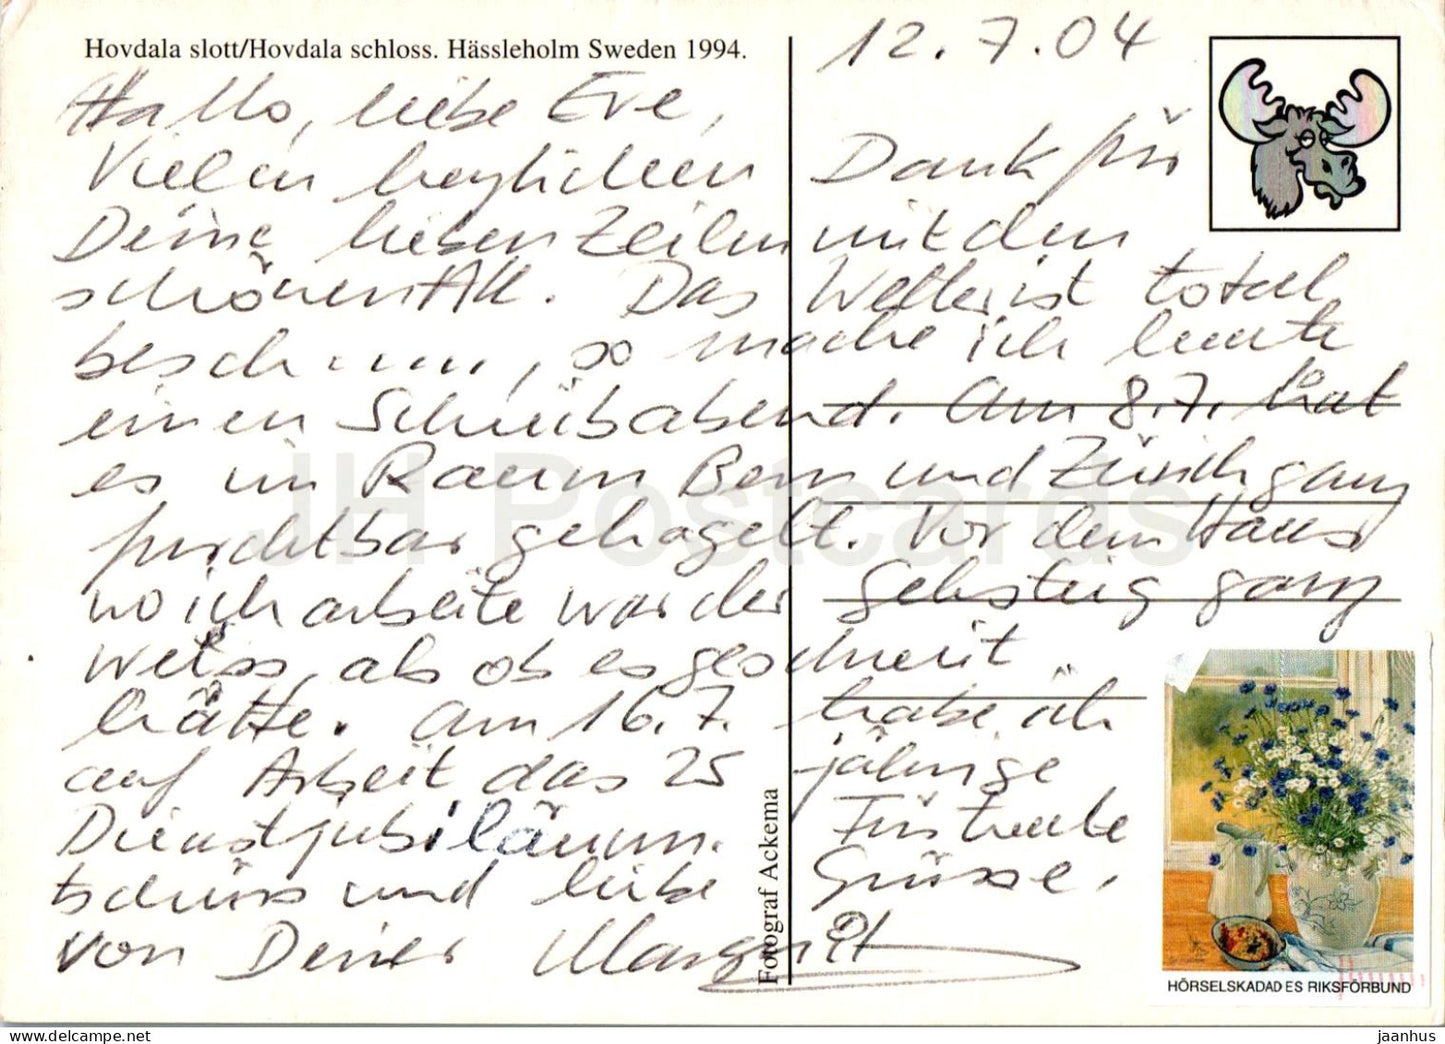 Hovdala slott/Hovdala schloss. Hässleholm Sweden 1994.
12.7.04
Hallo, liebe Eve,
Vielen herzlichen Dank für
Deine lieben Zeilen mit den
schönen Das Wetter ist total
besch...., so mache ich heute
einen Schreibabend. Am 8.7. hat
es im Raum Bern und Zürich ganz
furchtbar gehagelt. Vor dem Haus
wo ich arbeite war der Gehsteig ganz
weiss, als ob es geschneit
hätte. Am 16.7. habe ich
auf Arbeit das 25 jährige
Dienstjubiläum. Für heute
tschüss und liebe Grüsse,
von Deiner Margrit
Fotograf Ackema
HÖRSELSKADADES RIKSFÖRBUND
JH Postcards
jaanhus